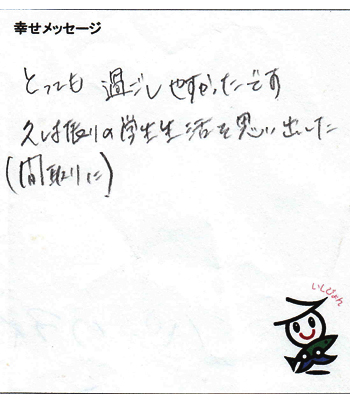 幸せメッセージ
とっても 過ごしやすかったです
久しぶりの学生生活を思い出した
(間取りに)
いしぴょん